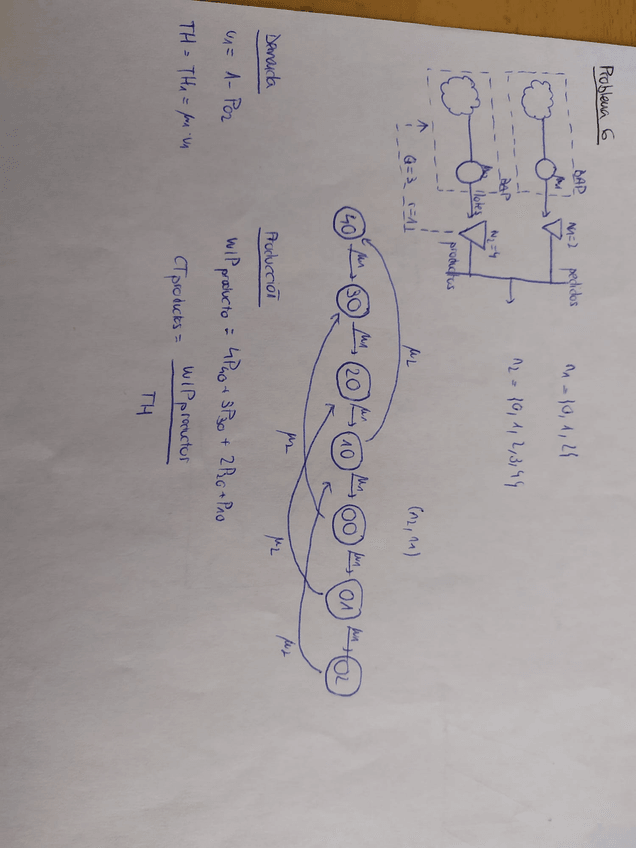 Problema 6
BAP
μ1
N1=2
pedidos
BAP
μ2
lotes
N2=4
productos
Q=3 r=1
n1 = {0, 1, 2}
n2 = {0, 1, 2, 3, 4}
(n2, n1)
μ2
40 μ1 30 μ1 20 μ1 10 μ1 00 μ1 01 μ1 02
μ2 μ2 μ2
Demanda
u1 = 1 - P02
TH = TH1 = μ1 · u1
Producción
WIP producto = 4P40 + 3P30 + 2P20 + P10
CT productos = WIP productos
TH